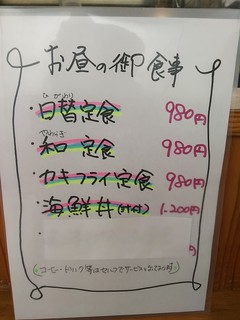 お昼の御食事
ひがわり
・日替定食 980円
やわらぎ
・和 定食 980円
・カキフライ定食 980円
・海鮮丼(汁付) 1.200円
円
コーヒー・ドリンク等はセルフでサービスしております